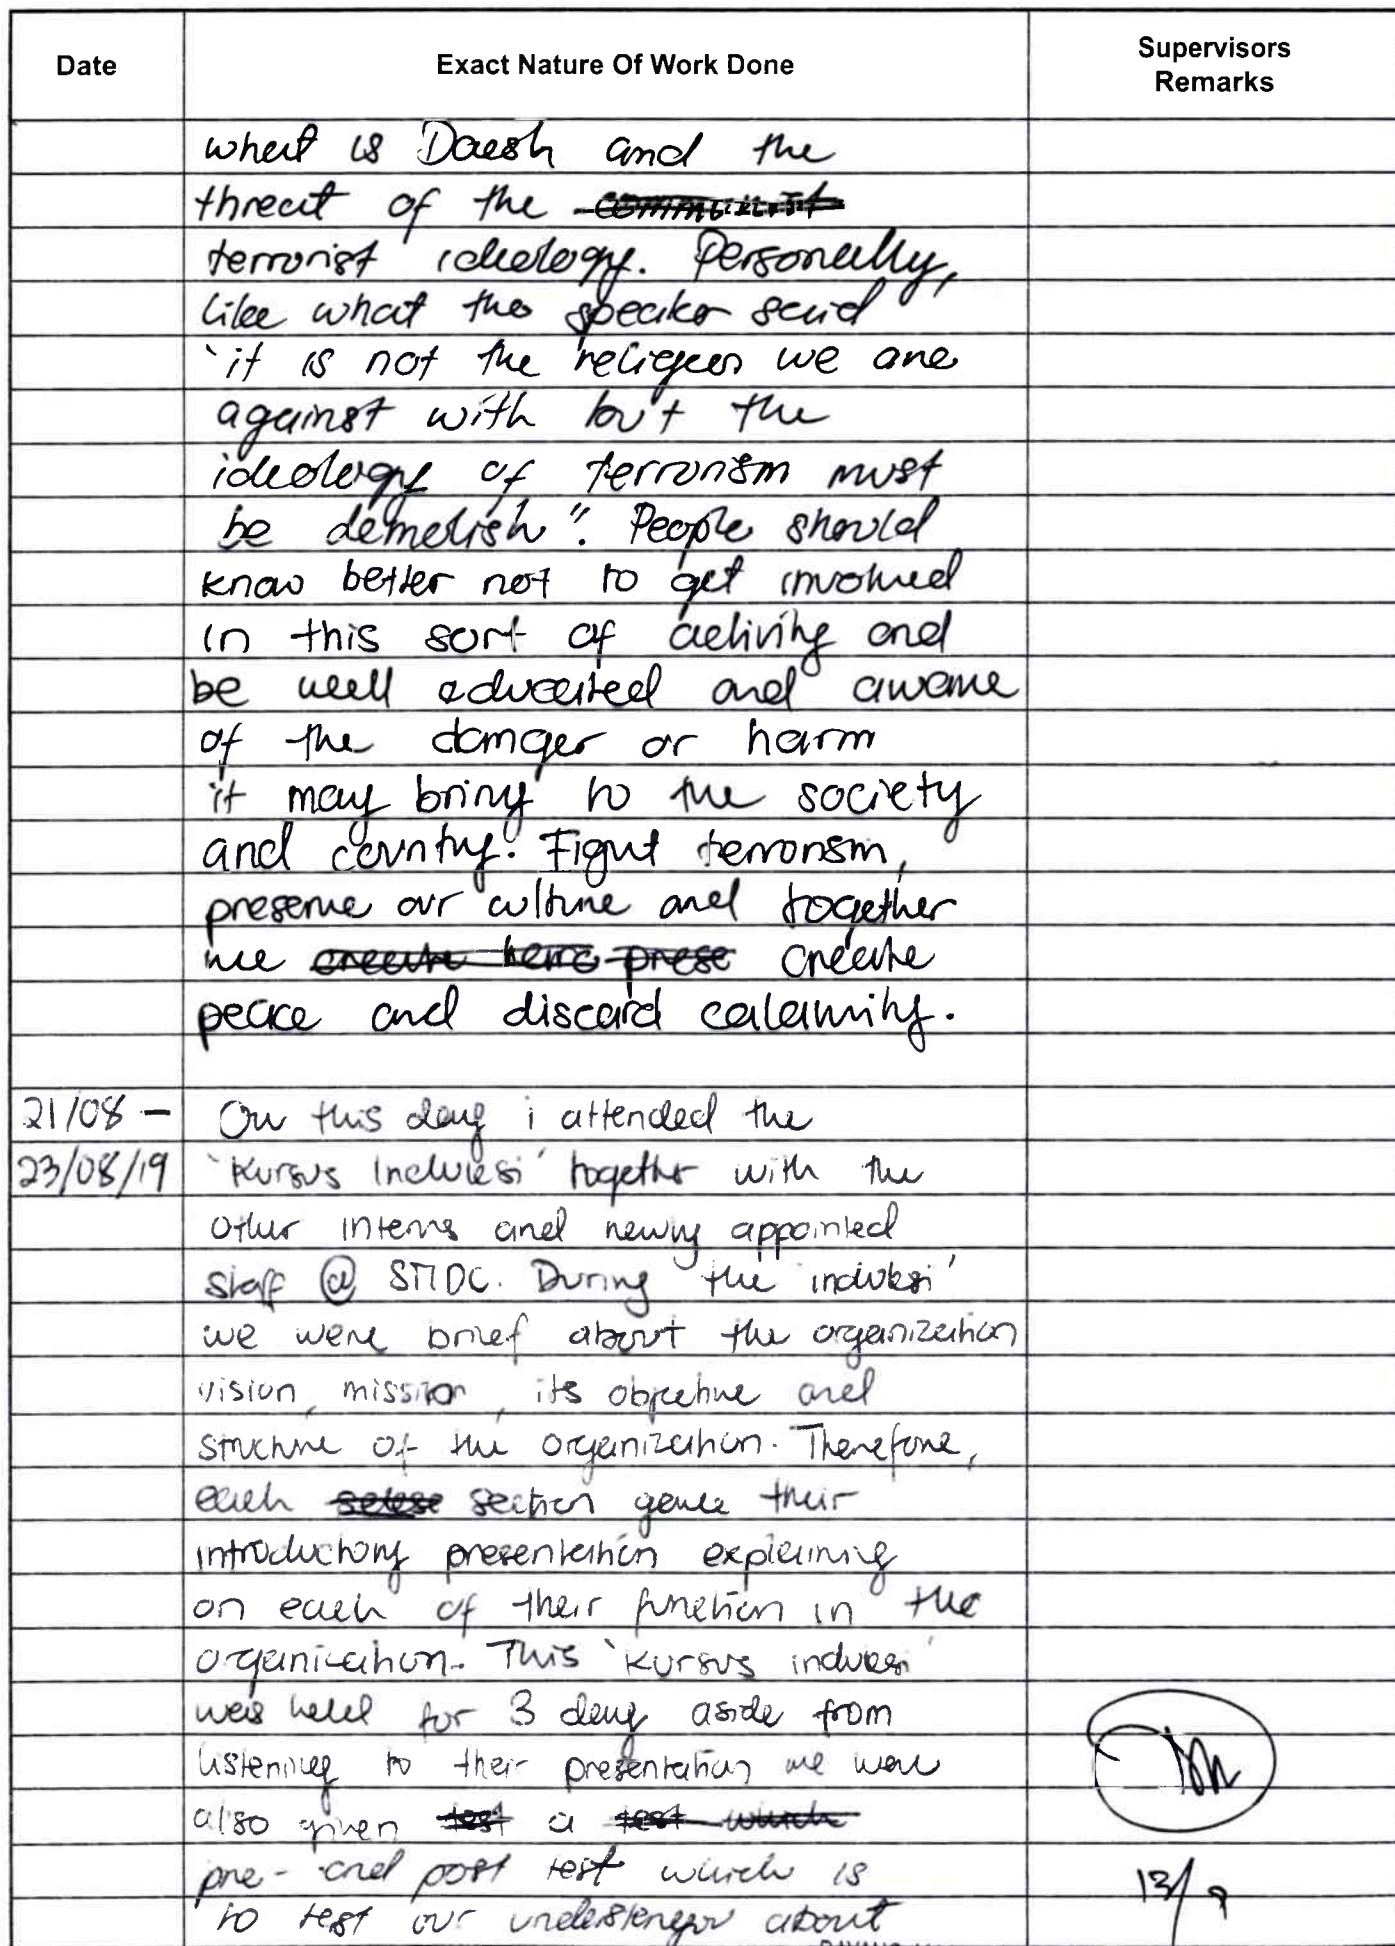 Date
Exact Nature Of Work Done
Supervisors
Remarks
what is Daesh and the
threat of the communist
terrorist ideology. Personally,
like what the speaker said
'it is not the religion we are
against with but the
ideology of terrorism must
be demolish". People should
know better not to get involved
in this sort of activity and
be well educated and aware
of the danger or harm
it may bring to the society
and country. Fight terrorism,
preserve our culture and together
we create prese create
peace and discard calamity.
21/08 -
On this day i attended the
23/08/19
'Kursus Induksi' together with the
other interns and newly appointed
staff @ STIDC. During the 'induksi'
we were brief about the organization
vision, mission, its objective and
structure of the organization. Therefore,
each section gave their
introductory presentation explaining
on each of their function in the
organization. This 'Kursus induksi'
was held for 3 day aside from
listening to their presentation we were
also given test a test which
pre- and post test which is
13/9
to test our about